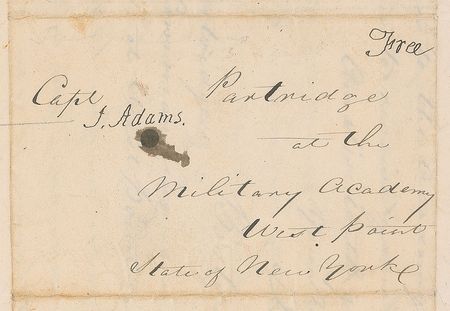 Free
Capt Partridge
J. Adams.
at the
Military Academy
West Point
State of New York